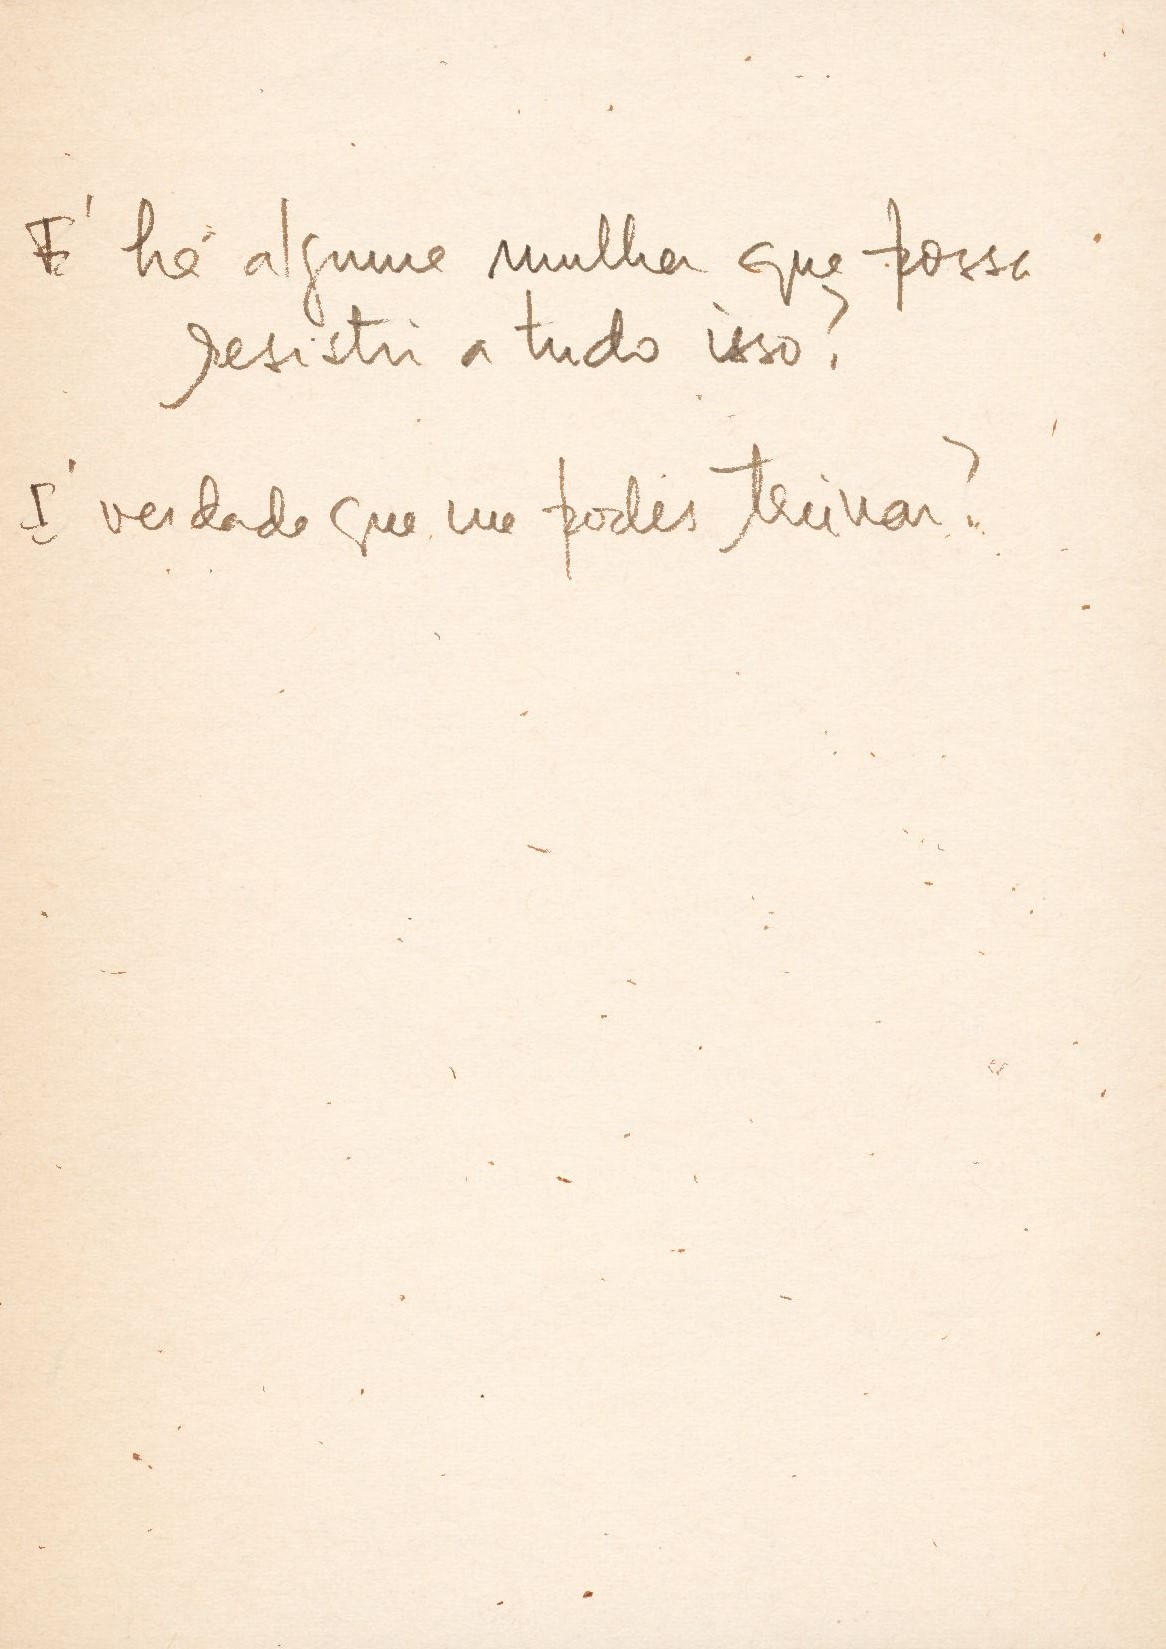 E' há alguma mulher que possa
resistir a tudo isso?
É verdade que me podes treinar?